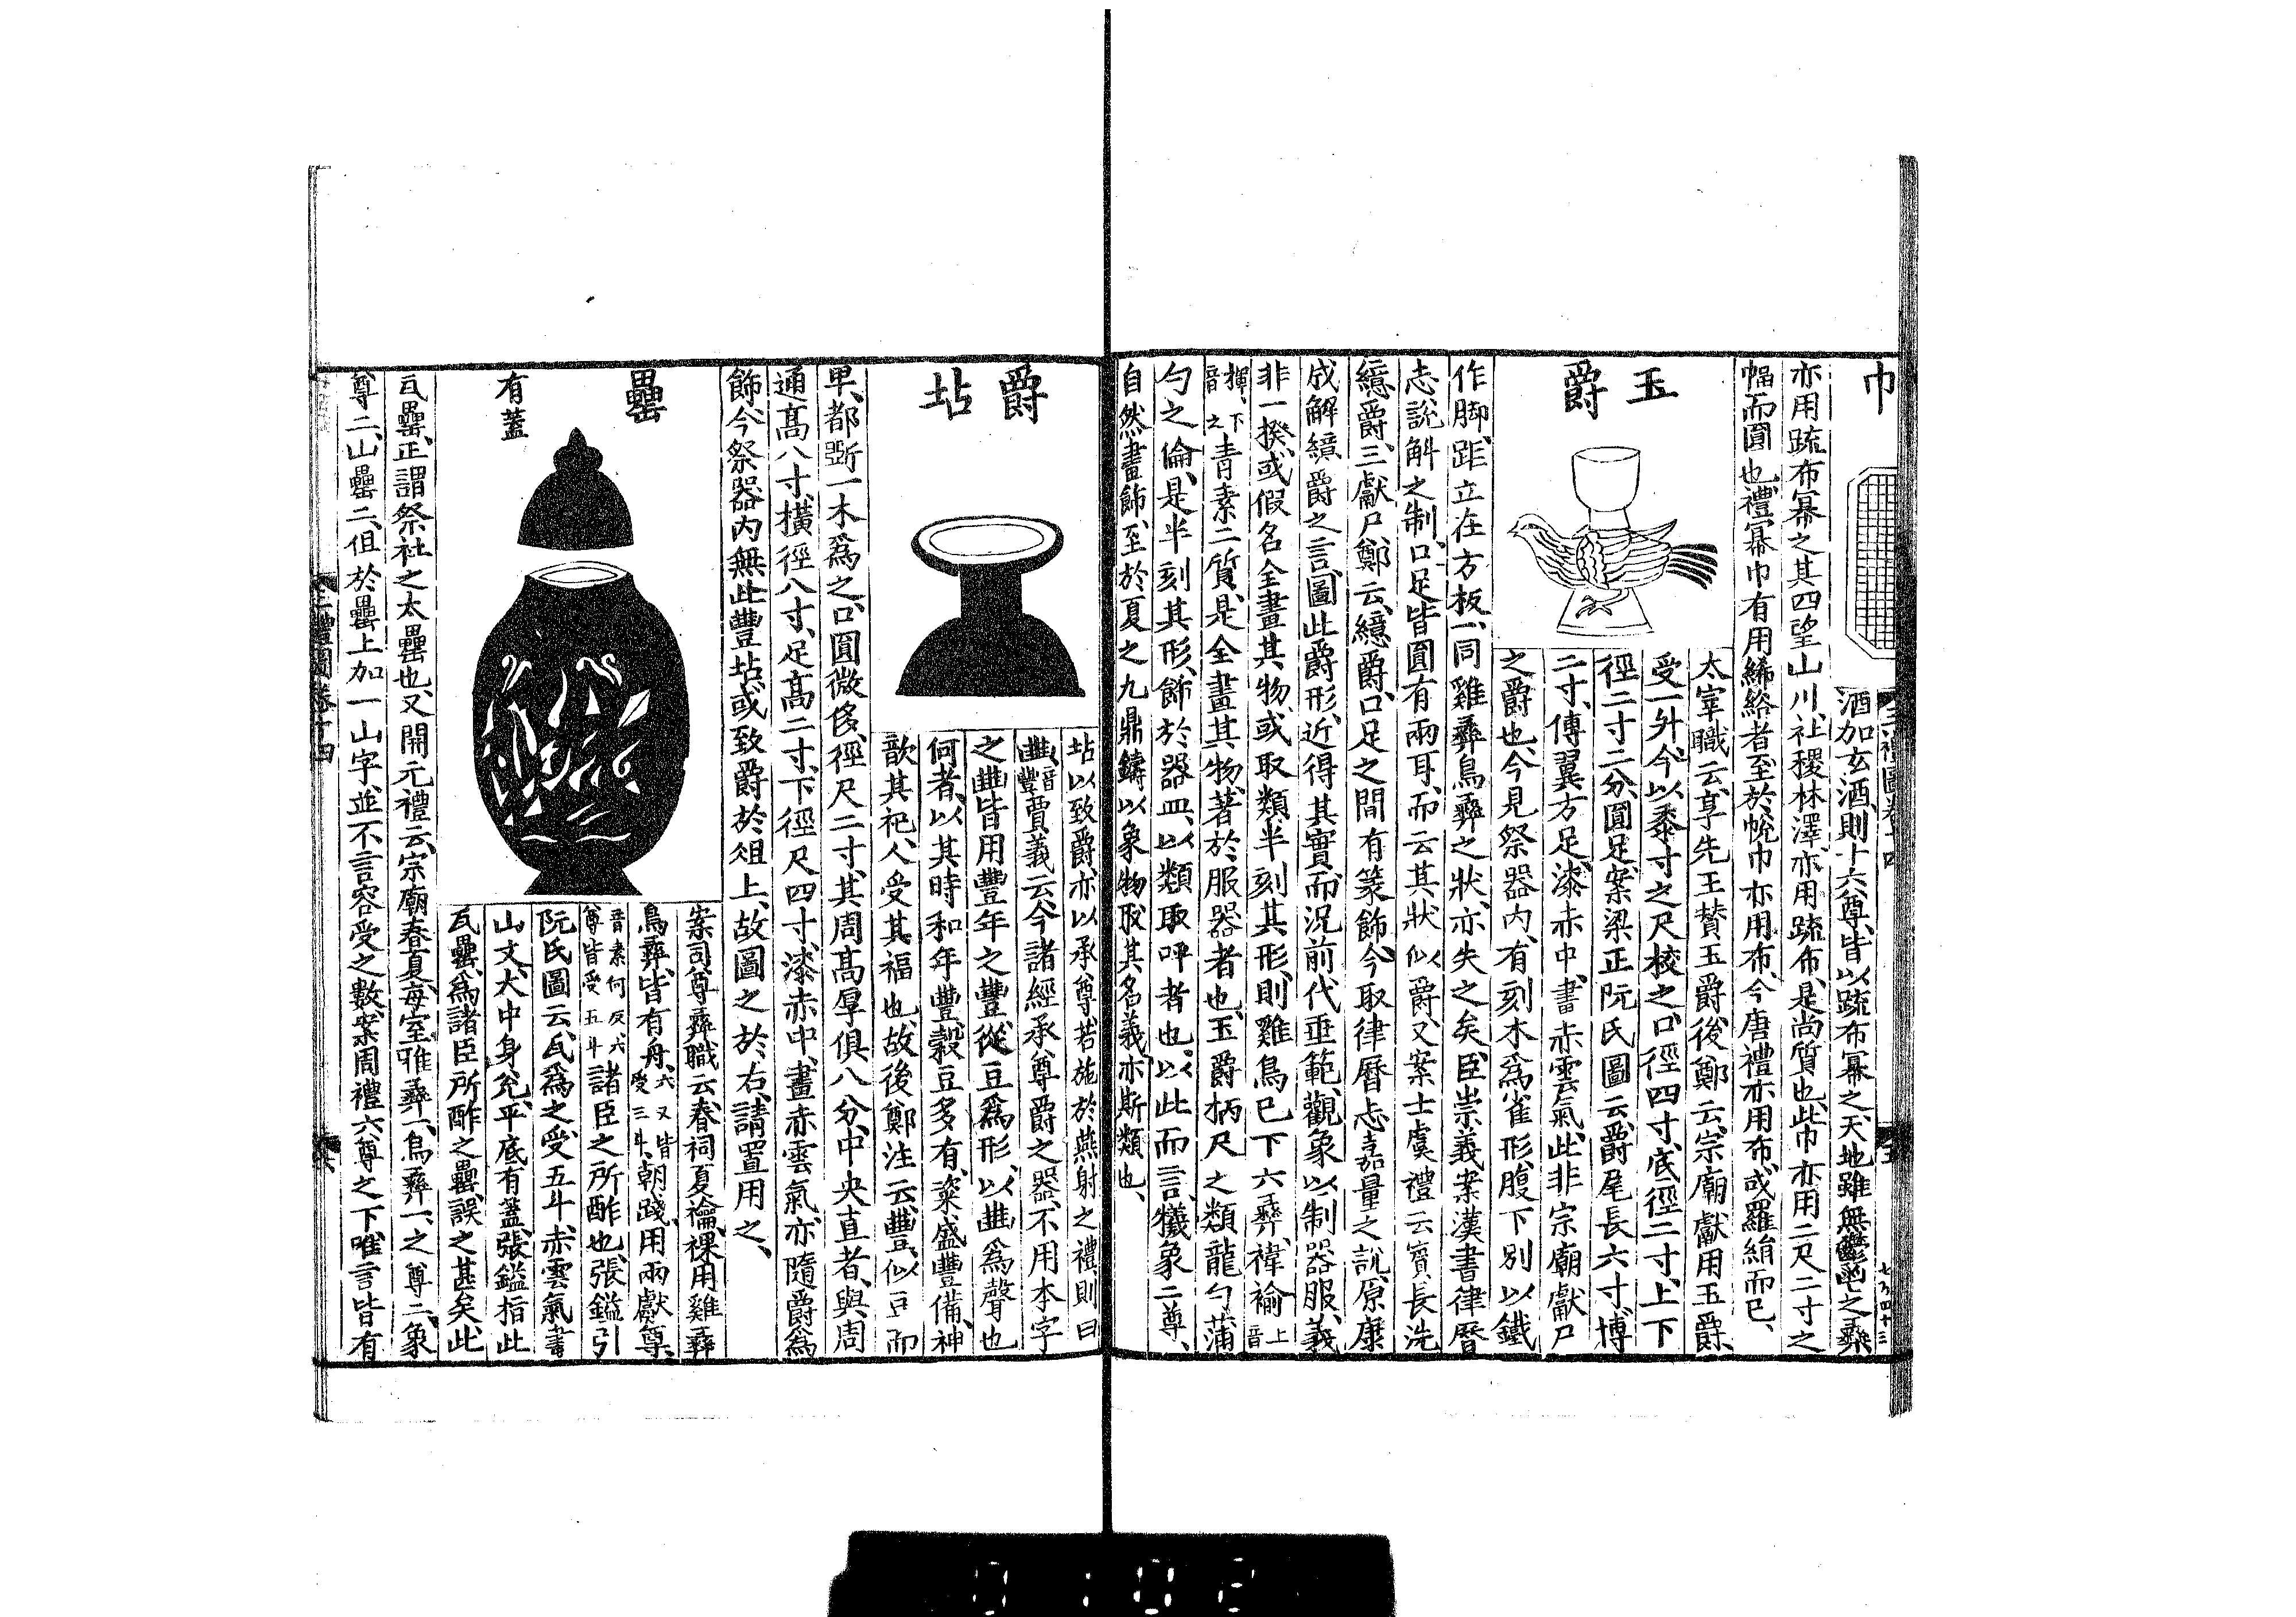 巾
酒加玄酒、則十六尊、皆以疏布冪之、天地雖無鬱鬯之彝
亦用疏布冪之、其四望山川、社稷林澤、亦用疏布、是尚質也、此巾亦用二尺二寸之
幅而圓也、禮冪巾有用絺綌者、至於帨巾亦用布、今唐禮亦用布、或羅絹而已、
玉爵
太宰職云、享先王贊玉爵、後鄭云、宗廟獻用玉爵、
受一升、今以黍寸之尺校之、口徑四寸、底徑二寸、上下
徑二寸二分、圓足、案梁正阮氏圖云、爵尾長六寸、博
二寸、傅翼方足、漆赤中、畫赤雲氣、此非宗廟獻尸
之爵也、今見祭器內、有刻木爲雀形、腹下別以鐵
作脚距、立在方板、一同雞彝鳥彝之狀、亦失之矣、臣崇義案漢書律曆
志、說斛之制、口足皆圓有兩耳、而云其狀似爵、又案士虞禮云、賓長洗
繶爵、三獻尸、鄭云、繶爵、口足之間有篆飾、今取律曆志嘉量之說、原康
成解繶爵之言、圖此爵形、近得其實、而況前代垂範、觀象以制器服、義
非一揆、或假名全畫其物、或取類半刻其形、則雞鳥已下六彝、褘褕 上音
揮、下音 之 青素二質、是全畫其物、著於服器者也、玉爵柄尺之類、龍勺蒲
勺之倫、是半刻其形、飾於器皿、以類取呼者也、以此而言、犧象二尊、
自然畫飾、至於夏之九鼎、鑄以象物、取其名義、亦斯類也、
爵坫
坫以致爵、亦以承尊、若施於燕射之禮、則曰
豐、音豐 賈義云、今諸經承尊爵之器、不用本字
之豐、皆用豐年之豐、從豆爲形、以豐爲聲也、
何者、以其時和年豐、穀豆多有、粢盛豐備、神
歆其祀、人受其福也、故後鄭注云、豐、似豆而
卑、都斲一木爲之、口圓微侈、徑尺二寸、其周高厚俱八分、中央直者、與周
通高八寸、橫徑八寸、足高二寸、下徑尺四寸、漆赤中、畫赤雲氣、亦隨爵爲
飾、今祭器內無此豐坫、或致爵於俎上、故圖之於右、請置用之、
罍
有蓋
案司尊彝職云、春祠夏禴、祼用雞彝
鳥彝、皆有舟、六又皆受三斗、朝踐、用兩獻尊、
音素何反、六尊皆受五斗 諸臣之所酢也、張鎰引
阮氏圖云、瓦爲之、受五斗、赤雲氣畫
山文、大中身兌、平底有蓋、張鎰指此
瓦罍、爲諸臣所酢之罍、誤之甚矣、此
瓦罍、正謂祭社之太罍也、又開元禮云、宗廟春夏、每室雞彝一、鳥彝一、之尊二、象
尊二、山罍二、但於罍上加一山字、並不言容受之數、案周禮六尊之下、唯言皆有
三禮圖卷十四